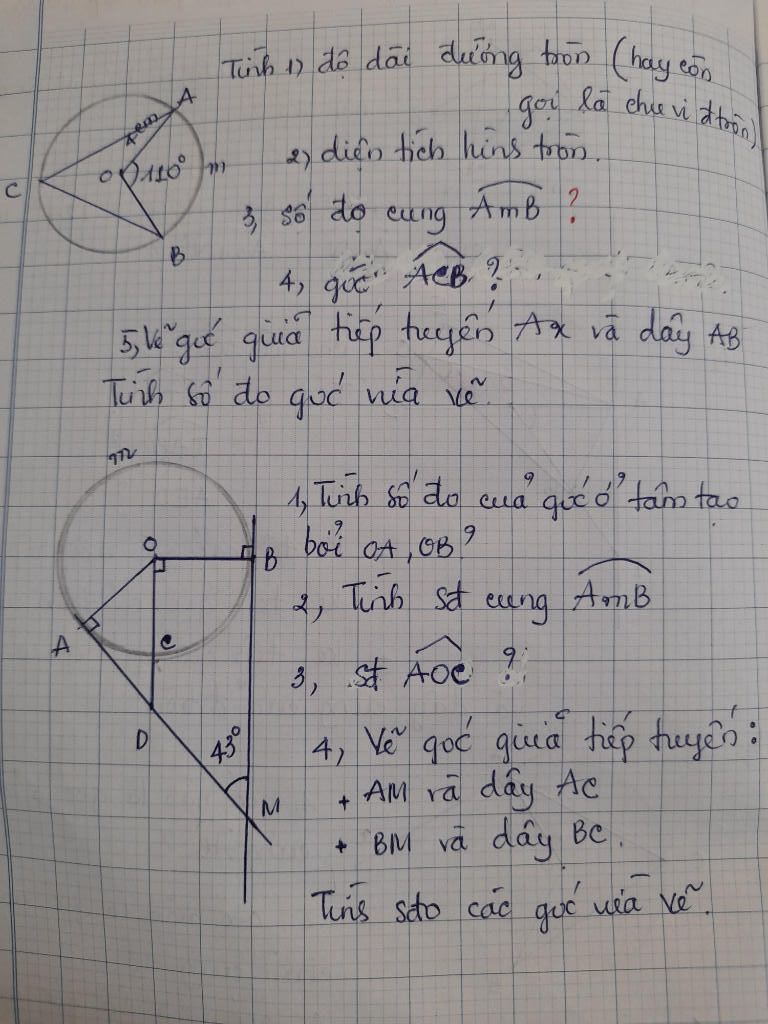 Tính 1) độ dài đường tròn (hay còn
gọi là chu vi đtròn)
2) diện tích hình tròn.
3, số đo cung AmB ?
4, góc ACB ?
5, Vẽ góc giữa tiếp tuyến Ax và dây AB
Tính số đo góc vừa vẽ.
A
cm
O
110°
m
C
B
1, Tính số đo của góc ở tâm tạo
bởi OA, OB?
2, Tính sđ cung AmB
3, sđ AOC ?
4, Vẽ góc giữa tiếp tuyến:
+ AM và dây AC
+ BM và dây BC.
Tính sđo các góc vừa vẽ.
m
O
B
A
C
D
43°
M